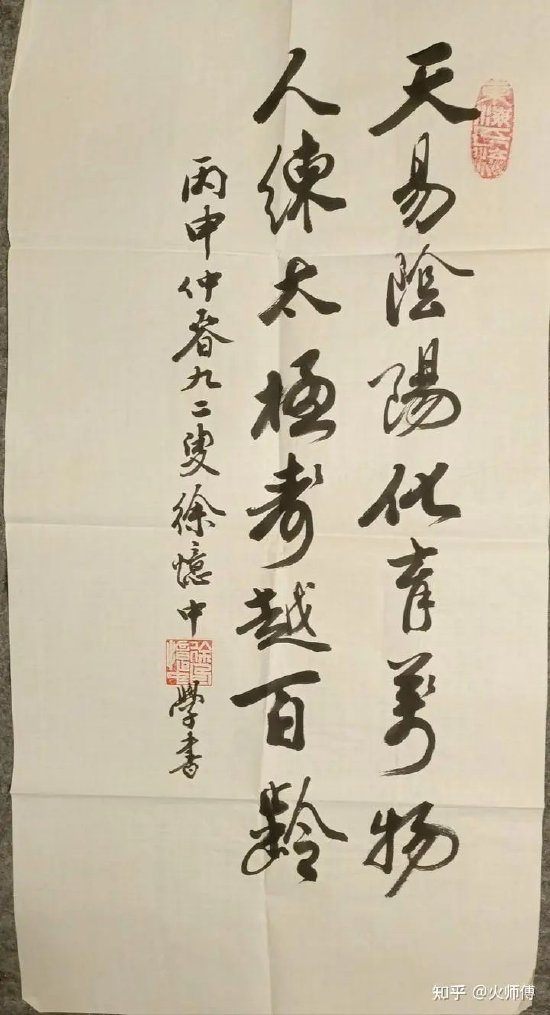 天易陰陽化育萬物
人練太極壽越百齡
丙申仲春九二叟徐憶中學書
徐憶中印
知乎 @火师傅